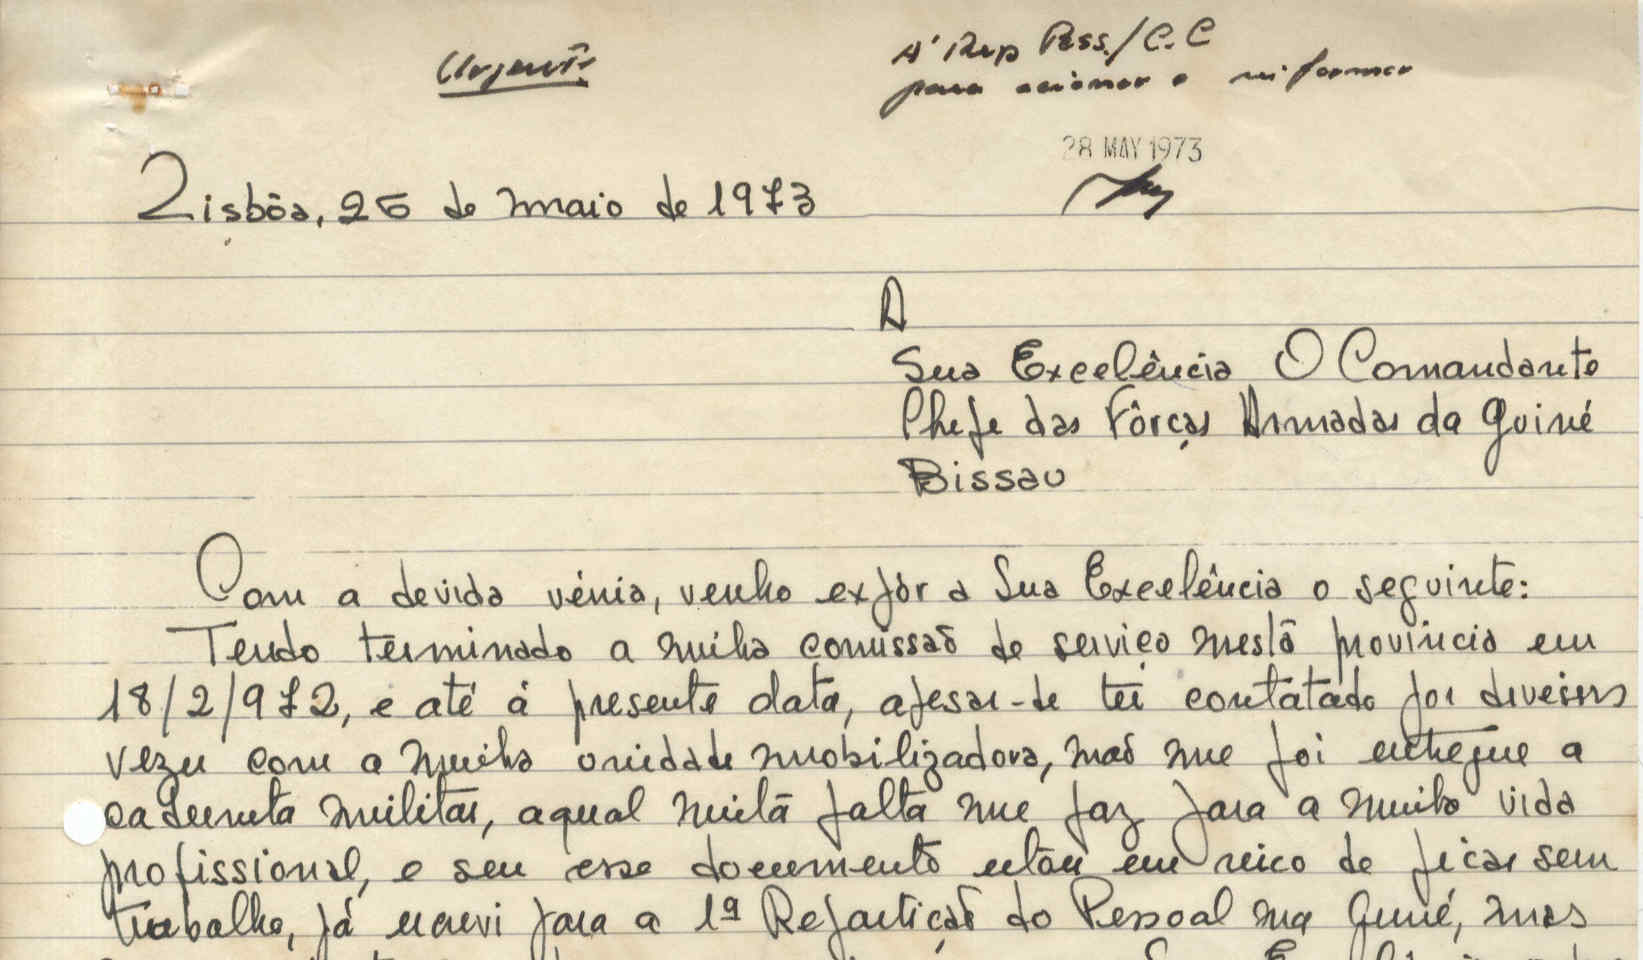 Urgente
À Rep Pess./C.C
para acionar e informar
28 MAY 1973
Lisbôa, 25 de maio de 1973
A
Sua Excelência O Comandante
Chefe das Fôrças Armadas da Guiné
Bissau
Com a devida vénia, venho expôr a Sua Excelência o seguinte:
Tendo terminado a minha comissaõ de serviço nesta provincia em
18/2/972, e até á presente data, apesar-de ter contatado por diversas
vezes com a minha unidade mobilizadora, naõ me foi entregue a
caderneta militar, aqual muita falta me faz para a minha vida
profissional, e sem esse documento estou em risco de ficar sem
trabalho, já escrevi para a 1ª Repartiçaõ do Pessoal na Guiné, mas